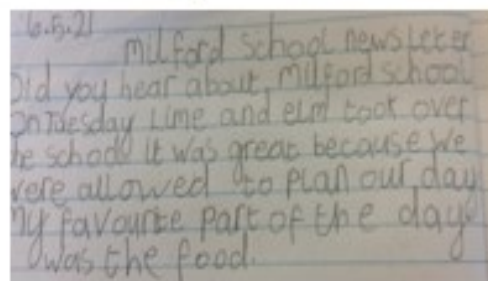 6.5.21
milford school newsleter
Did you hear about, milford school
On Tuesday Lime and elm took over
he school it was great because we
were allowed to plan our day
My favourite part of the day
was the food.